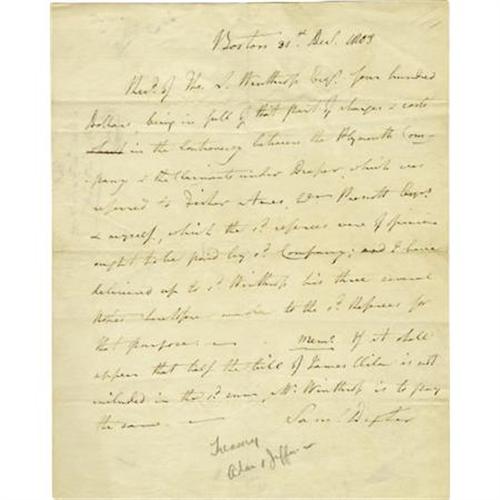 Boston 31st Decr. 1803
Recd. of Tho. L. Winthrop Esqr. four hundred
Dollars, being in full of that part of charges & costs
in the Controversy between the Plymouth Com-
pany & the Claimants under Draper, which was
referred to Fisher Ames, Wm Prescott Esqrs.
& myself, which the sd. referees were of opinion
ought to be paid by sd. Company; and I have
delivered up to sd. Winthrop his three several
notes heretofore made to the sd. Referees for
that purpose. — Memo. If it shall
appear that half the bill of James is not
included in the sd. sum, Mr. Winthrop is to pay
the same. — Saml. Dexter
Treasury
Adams & Jefferson